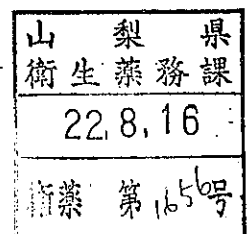 山梨県
衛生薬務課
22.8.16
衛薬 第1656号